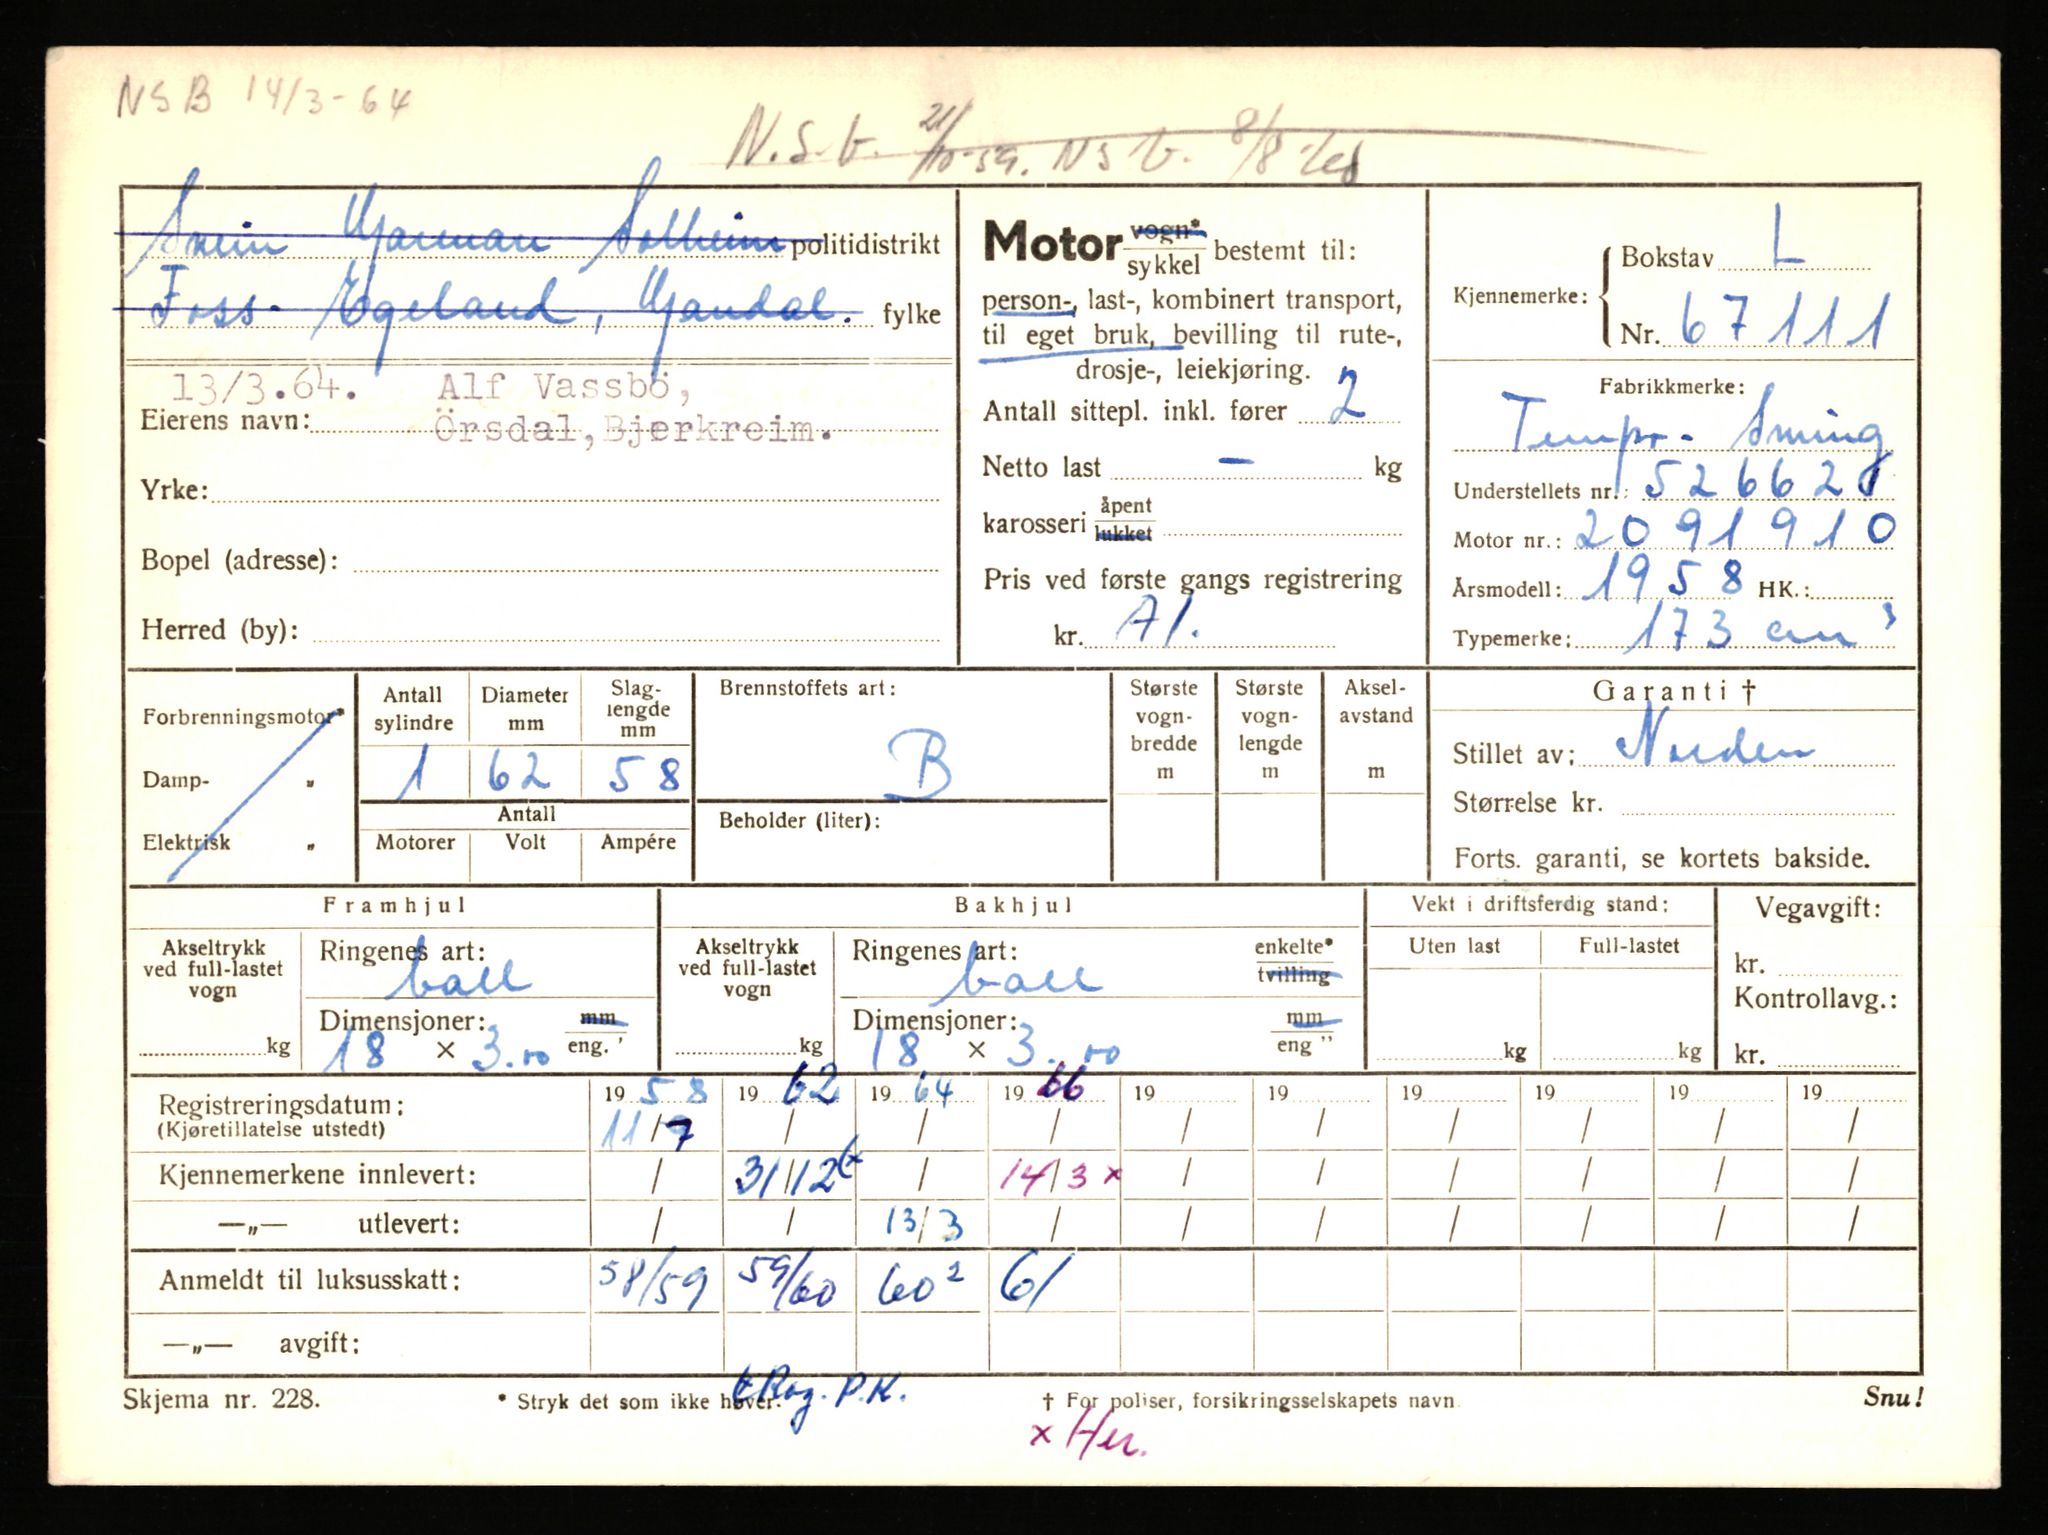 NSB 14/3-64
N.S.b. 21/10-59. NSb. 8/8
Svein Hjarman Solheim politidistrikt
Foss-Egeland, Hjandal. fylke
13/3.64. Alf Vassbö,
Eierens navn: Örsdal, Bjerkreim.
Yrke:
Bopel (adresse):
Herred (by):
Motor vogn* / sykkel bestemt til:
person-, last-, kombinert transport,
til eget bruk, bevilling til rute-,
drosje-, leiekjøring.
Antall sittepl. inkl. fører 2
Netto last — kg
karosseri åpent / lukket
Pris ved første gangs registrering
kr. A/.
Kjennemerke: Bokstav L
Nr. 67111
Fabrikkmerke:
Tempo- Swing
Understellets nr.: 526621
Motor nr.: 2091910
Årsmodell: 1958 HK.:
Typemerke: 173 cm³
Forbrenningsmotor*
Damp- „
Elektrisk „
Antall sylindre 1
Diameter mm 62
Slag-lengde mm 58
Antall
Motorer Volt Ampére
Brennstoffets art:
B
Beholder (liter):
Største vogn-bredde m
Største vogn-lengde m
Aksel-avstand m
Garanti †
Stillet av: Norden
Størrelse kr.
Forts. garanti, se kortets bakside.
Framhjul
Akseltrykk ved full-lastet vogn
kg
Ringenes art:
ball
Dimensjoner: mm / eng. '
18 × 3.00
Bakhjul
Akseltrykk ved full-lastet vogn
kg
Ringenes art: enkelte* / tvilling
ball
Dimensjoner: mm / eng "
18 × 3.00
Vekt i driftsferdig stand:
Uten last Full-lastet
kg kg
Vegavgift:
kr.
Kontrollavg.:
kr.
Registreringsdatum: 1958 1962 1964 1966 19 19 19 19 19 19
(Kjøretillatelse utstedt) 11/7 / / / / / / / / /
Kjennemerkene innlevert: / 31/12 (x / 14/3 x / / / / / /
—„— utlevert: / / 13/3 / / / / / / /
Anmeldt til luksusskatt: 58/59 59/60 60² 61
—„— avgift:
Skjema nr. 228. * Stryk det som ikke høver. † For poliser, forsikringsselskapets navn Snu!
Rog. P.K.
x Her.